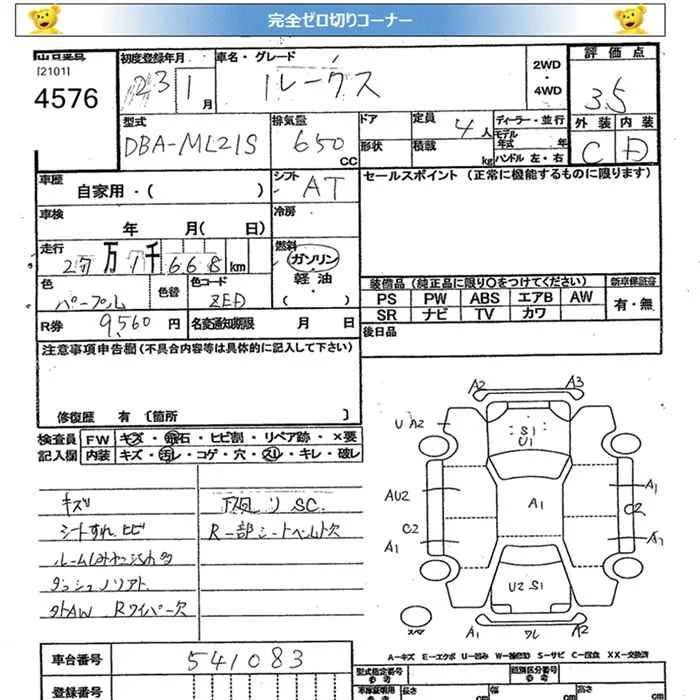 完全ゼロ切りコーナー
出品番号
[2101]
4576
初度登録年月
23 1月
車名・グレード
ルークス
2WD
・
4WD
評価点
3.5
外装 内装
C D
型式
DBA-ML21S
排気量
650
CC
ドア
形状
定員
4人
積載
kg
ディーラー・並行
モデル
年式 年
ハンドル 左・右
車歴
自家用・( )
シフト
AT
セールスポイント (正常に機能するものに限ります)
車検
年 月( 日)
冷房
走行
27万1千668km
燃料
ガソリン
軽油
・( )
色
パープル
色替
色コード
ZED
装備品 (純正品に限り○をつけてください)
新車保証書
PS PW ABS エアB AW
有・無
SR ナビ TV カワ
R券 9,560 円
名変通知期限 月 日
後日品
注意事項申告欄 (不具合内容等は具体的に記入して下さい)
修復歴 有 〔箇所 〕
検査員
記入欄
FW キズ・飛石・ヒビ割・リペア跡・×要
内装 キズ・汚レ・コゲ・穴・スレ・キレ・破レ
キズ
シートすれ ヒビ
下廻り SC.
外AW Rワイパー欠
A2 A3
U A2
S1
U1
AU2
A1
A1
C2
C2
A1
U2 S1
A1 ワレ A2
スペア
A-キズ E-エクボ U-凹み W-補修跡 S-サビ C-腐食 XX-交換済
車台番号
541083
登録番号
型式指定番号
参考
類別区分番号
参考
長さ
cm
幅
cm
高さ
cm